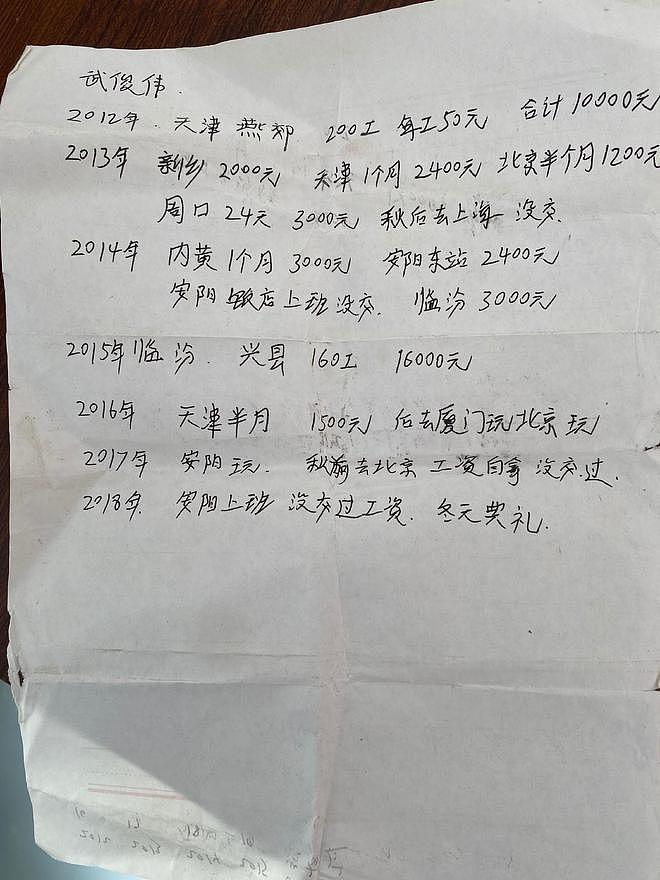 武俊伟.
2012年. 天津 燕郊 200工 每工50元 合计10000元
2013年 新乡 2000元 天津 1个月 2400元 北京半个月1200元
周口 24天 3000元 秋后去上海 没交.
2014年 内黄 1个月 3000元 安阳东站 2400元
安阳 店上班没交. 临汾 3000元
2015年 临汾. 兴县 160工 16000元
2016年 天津半月 1500元 后去厦门玩 北京 玩
2017年 安阳 玩. 秋前去北京 工资自拿 没交过.
2018年. 安阳上班 没交过工资. 冬天典礼.